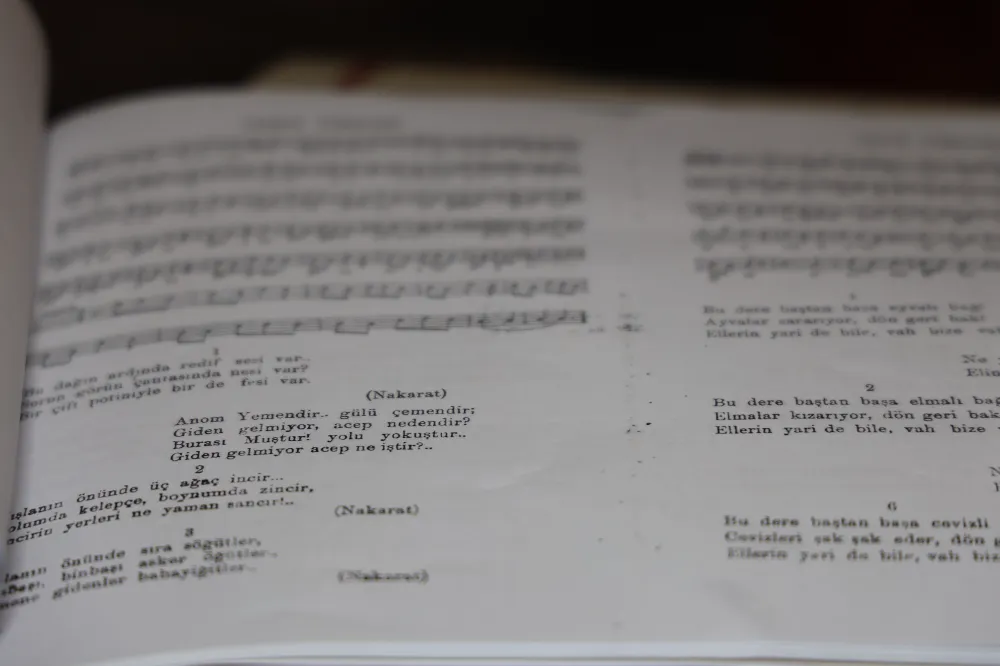 1
Bu dağın ardında redif sesi var..
görün çantasında nesi var?
Bir çift potiniyle bir de fesi var.
(Nakarat)
Anom Yemendir.. gülü çemendir;
Giden gelmiyor, acep nedendir?
Burası Muştur! yolu yokuştur..
Giden gelmiyor acep ne iştir?..
2
ışlanın önünde üç ağaç incir...
olumda kelepçe, boynumda zincir,
ncirin yerleri ne yaman sancır!..
(Nakarat)
3
lanın önünde sıra söğütler,
binbaşı asker öğütler..
gidenler babayiğitler..
(Nakarat)
1
Bu dere baştan başa ayvalı bağ!
Ayvalar sararıyor, dön geri bak!
Ellerin yari de bile, vah bize
Elin
2
Bu dere baştan başa elmalı bağ
Elmalar kızarıyor, dön geri bak
Ellerin yari de bile, vah bize
6
Bu dere baştan başa cevizli
Cevizleri şak şak eder, dön
Ellerin yari de bile, vah biz